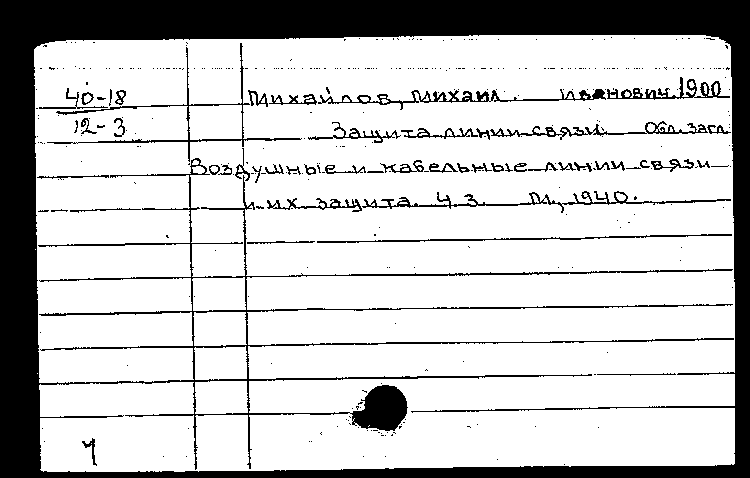 40-18
12-3
Михайлов, Михаил Иванович. 1900
Защита линии связи. Обл. загл.
Воздушные и кабельные линии связи
и их защита. Ч. 3. М., 1940.